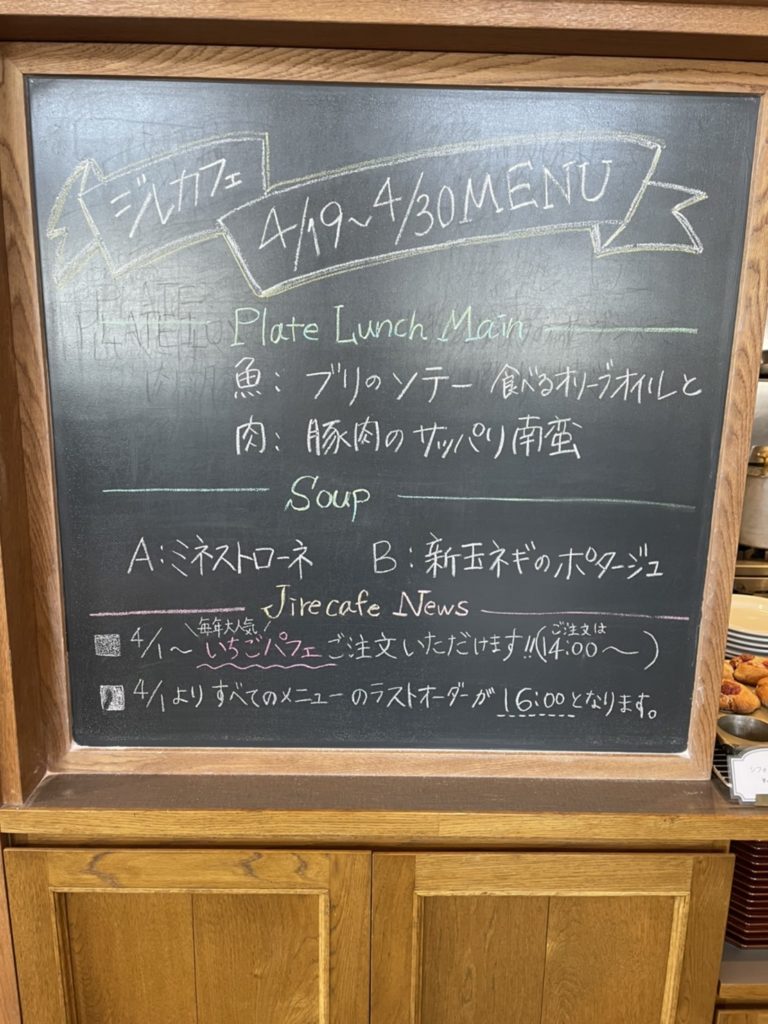 ジルカフェ
4/19~4/30 MENU
Plate Lunch Main
魚: ブリのソテー 食べるオリーブオイルと
肉: 豚肉のサッパリ南蛮
Soup
A:ミネストローネ B:新玉ネギのポタージュ
Jirecafe News
\毎年大人気/ ご注文は
4/1~ いちごパフェ ご注文いただけます!!(14:00~)
4/1より すべてのメニューのラストオーダーが 16:00となります。